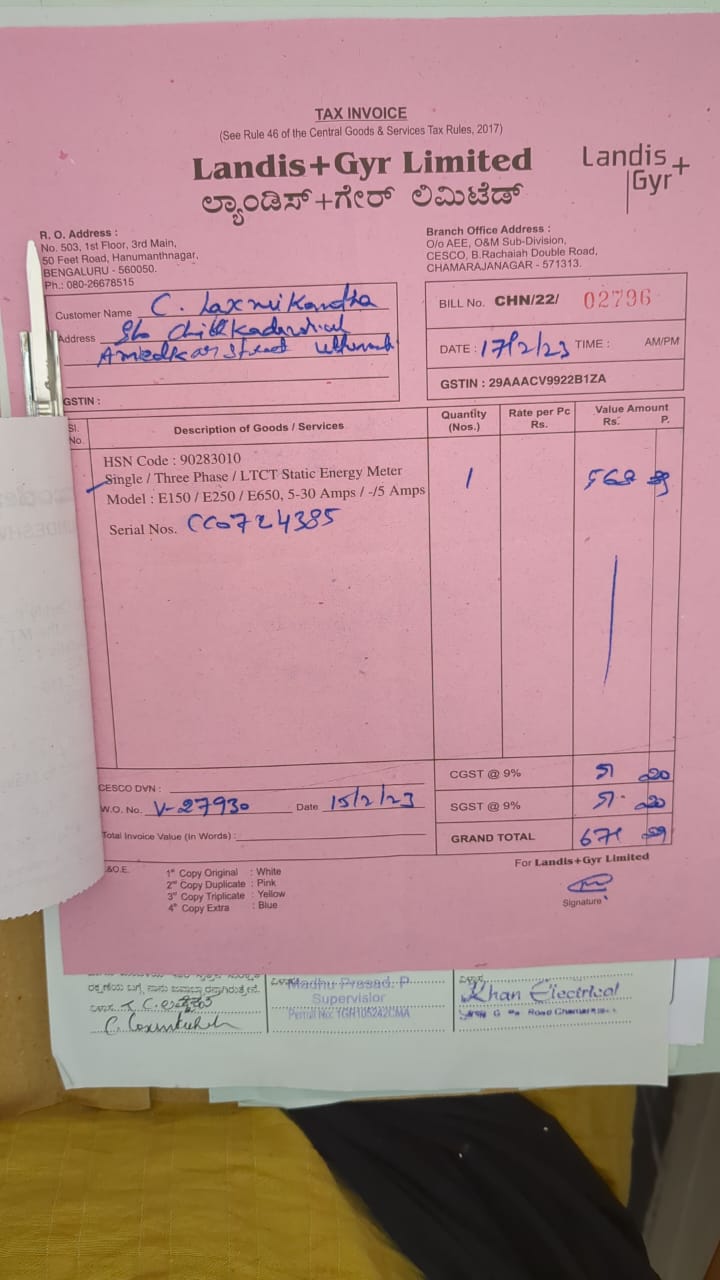 TAX INVOICE
(See Rule 46 of the Central Goods & Services Tax Rules, 2017)
Landis+Gyr Limited
ಲ್ಯಾಂಡಿಸ್+ಗೇರ್ ಲಿಮಿಟೆಡ್
Landis
Gyr+
R. O. Address :
No. 503, 1st Floor, 3rd Main,
50 Feet Road, Hanumanthnagar,
BENGALURU - 560050.
Ph.: 080-26678515
Branch Office Address :
O/o AEE, O&M Sub-Division,
CESCO, B.Rachaiah Double Road,
CHAMARAJANAGAR - 571313.
Customer Name C. Laxmikandha
Address S/o
Street
GSTIN :
BILL No. CHN/22/ 02796
DATE : 17/2/23 TIME : AM/PM
GSTIN : 29AAACV9922B1ZA
Sl. No. Description of Goods / Services Quantity (Nos.) Rate per Pc Rs. Value Amount Rs. P.
HSN Code : 90283010
Single / Three Phase / LTCT Static Energy Meter 1 568
Model : E150 / E250 / E650, 5-30 Amps / -/5 Amps
Serial Nos. CC0724385
CESCO DVN :
W.O. No. V-27930 Date 15/2/23
Total Invoice Value (In Words) :
CGST @ 9% 51 20
SGST @ 9% 51 20
GRAND TOTAL 671
&O.E.
1st Copy Original : White
2nd Copy Duplicate : Pink
3rd Copy Triplicate : Yellow
4th Copy Extra : Blue
For Landis+Gyr Limited
Signature
Madhu Prasad. P
Supervisior
Khan Electrical
Road